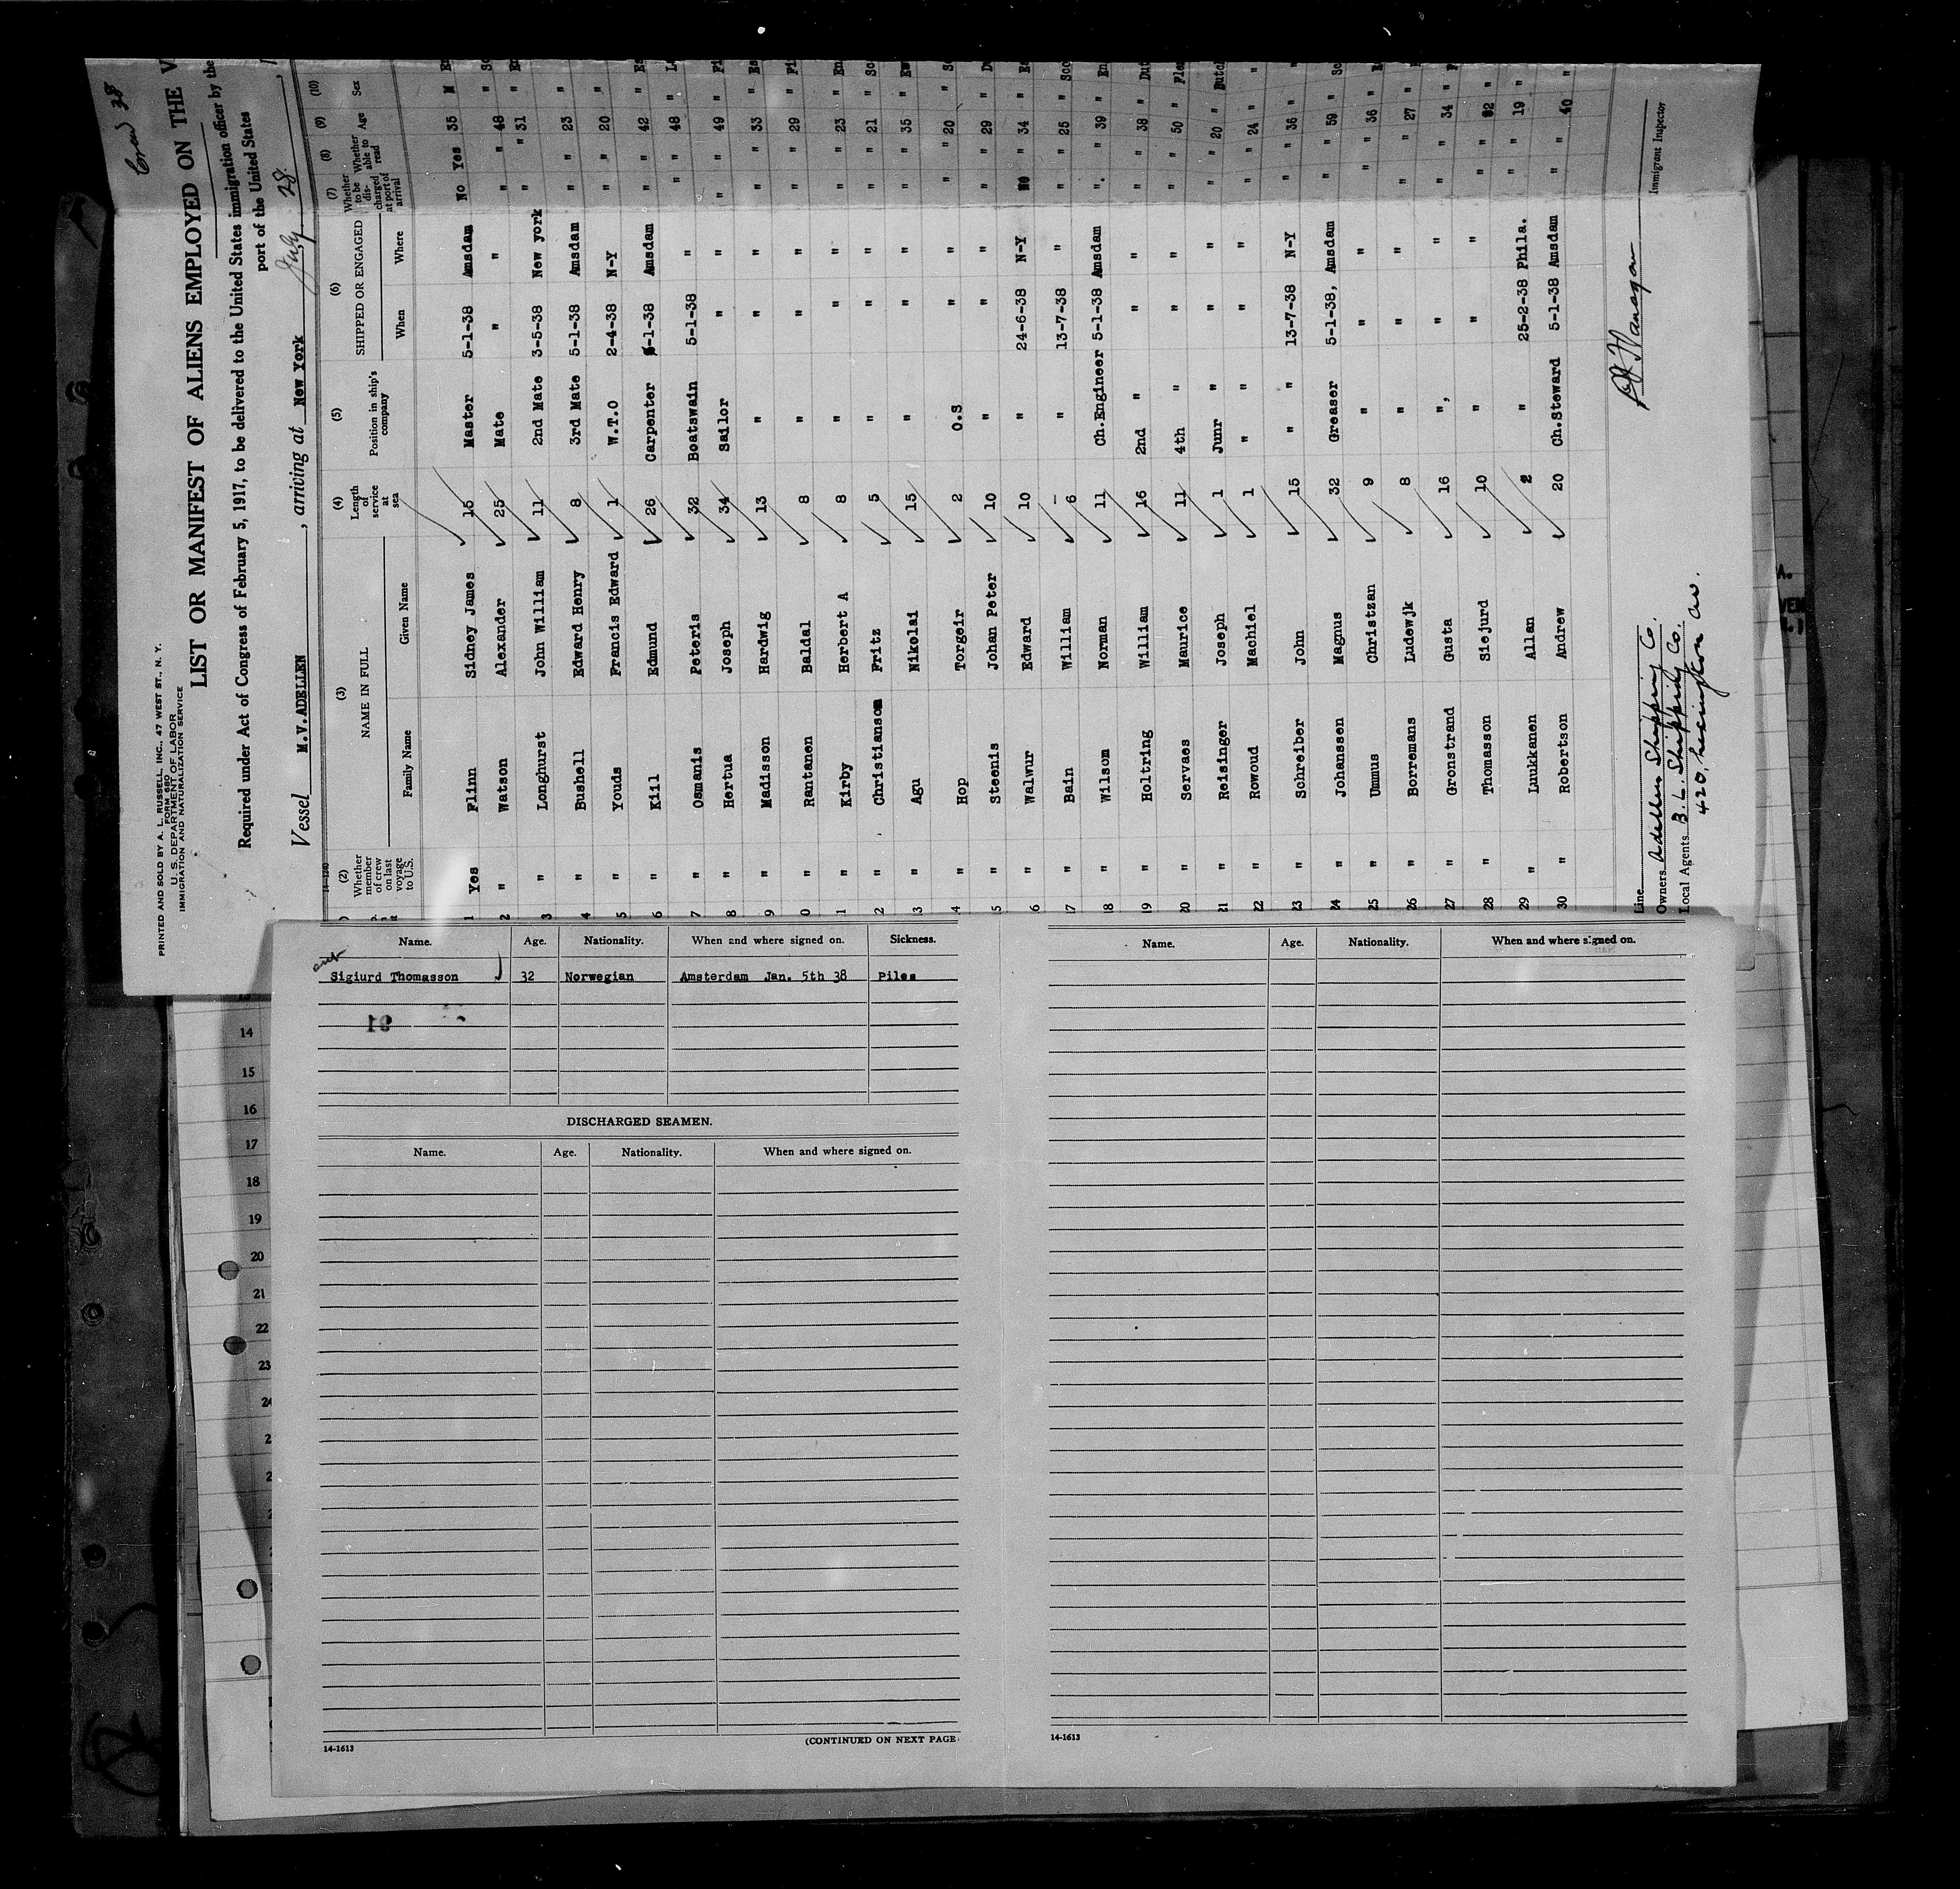 PRINTED AND SOLD BY A. L. RUSSELL, INC., 47 WEST ST., N. Y.
FORM 680
U. S. DEPARTMENT OF LABOR
IMMIGRATION AND NATURALIZATION SERVICE
LIST OR MANIFEST OF ALIENS EMPLOYED ON THE V
Required under Act of Congress of February 5, 1917, to be delivered to the United States immigration officer by the
port of the United States
Vessel M.V.ADELLEN , arriving at New York July 28 , 1
14-1240
(2) Whether member of crew on last voyage to U.S. (3) NAME IN FULL Family Name Given Name (4) Length of service at sea (5) Position in ship's company (6) SHIPPED OR ENGAGED When Where (7) Whether to be discharged at port of arrival (8) Whether able to read (9) Age (10) Sex
1 Yes Flinn Sidney James 15 Master 5-1-38 Amsdam No Yes 35 M
2 " Watson Alexander 25 Mate " " " " 48 "
3 " Longhurst John William 11 2nd Mate 3-5-38 New york " " 31 "
4 " Bushell Edward Henry 8 3rd Mate 5-1-38 Amsdam " " 23 "
5 " Youds Francis Edward 1 W.T.O 2-4-38 N-Y " " 20 "
6 " Kiil Edmund 26 Carpenter 5-1-38 Amsdam " " 42 " Es
7 " Osmanis Peteris 32 Boatswain 5-1-38 " " " 48 "
8 " Hertua Joseph 34 Sailor " " " " 49 " Fi
9 " Madisson Hardwig 13 " " " " " 33 " Es
0 " Rantanen Baldal 8 " " " " " 29 " Fi
1 " Kirby Herbert A 8 " " " " " 23 " En
2 " Christianson Fritz 5 " " " " " 21 " Sc
3 " Agu Nikolai 15 " " " " " 35 "
4 " Hop Torgeir 2 O.S " " " " 20 "
5 " Steenis Johan Peter 10 " " " " " 29 " D
6 " Walwur Edward 10 " 24-6-38 N-Y " 34 " Es
17 " Bain William 6 " 13-7-38 " " " 25 " Sco
18 " Wilsom Norman 11 Ch.Engineer 5-1-38 Amsdam " " 39 " En
19 " Holtring William 16 2nd " " " " " 38 " Dut
20 " Servaes Maurice 11 4th " " " " " 50 "
21 " Reisinger Joseph 1 Junr " " " " " 20 " Dutch
22 " Rowoud Machiel 1 " " " " " " 24 " "
23 " Schreiber John 15 " " 13-7-38 N-Y " " 36 " "
24 " Johanssen Magnus 32 Greaser 5-1-38, Amsdam " " 59 " Sc
25 " Ummus Christzan 9 " " " " " 36 "
26 " Borremans Ludewjk 8 " " " " " 27 "
27 " Gronstrand Gusta 16 ", " " " " 34 "
28 " Thomasson Siejurd 10 " " " " " 32 "
29 " Luukkanen Allan 2 " 25-2-38 Phila. " " 19 "
30 " Robertson Andrew 20 Ch.Steward 5-1-38 Amsdam " " 40 "
Line
Owners Adellen Shipping Co.
Local Agents B. L. Shipping Co.
420, Lexington av.
Immigrant Inspector
Name. Age. Nationality. When and where signed on. Sickness.
Sigiurd Thomasson 32 Norwegian Amsterdam Jan. 5th 38 Piles
DISCHARGED SEAMEN.
Name. Age. Nationality. When and where signed on.
14-1613
(CONTINUED ON NEXT PAGE
Name. Age. Nationality. When and where signed on.
14-1613
13
14
15
16
17
18
19
20
21
22
23